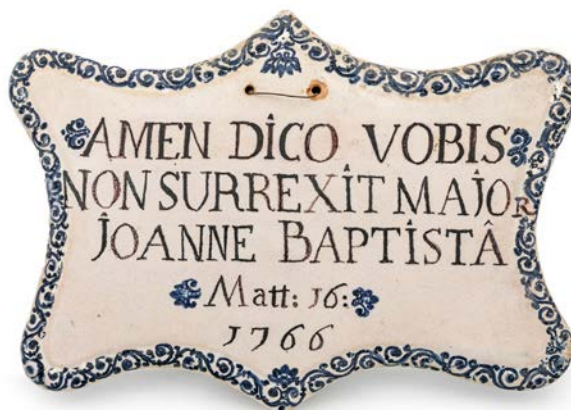 AMEN DiCO VOBIS
NON SURREXiT MAJOR
JOANNE BAPTiSTÂ
Matt: 16:
1766